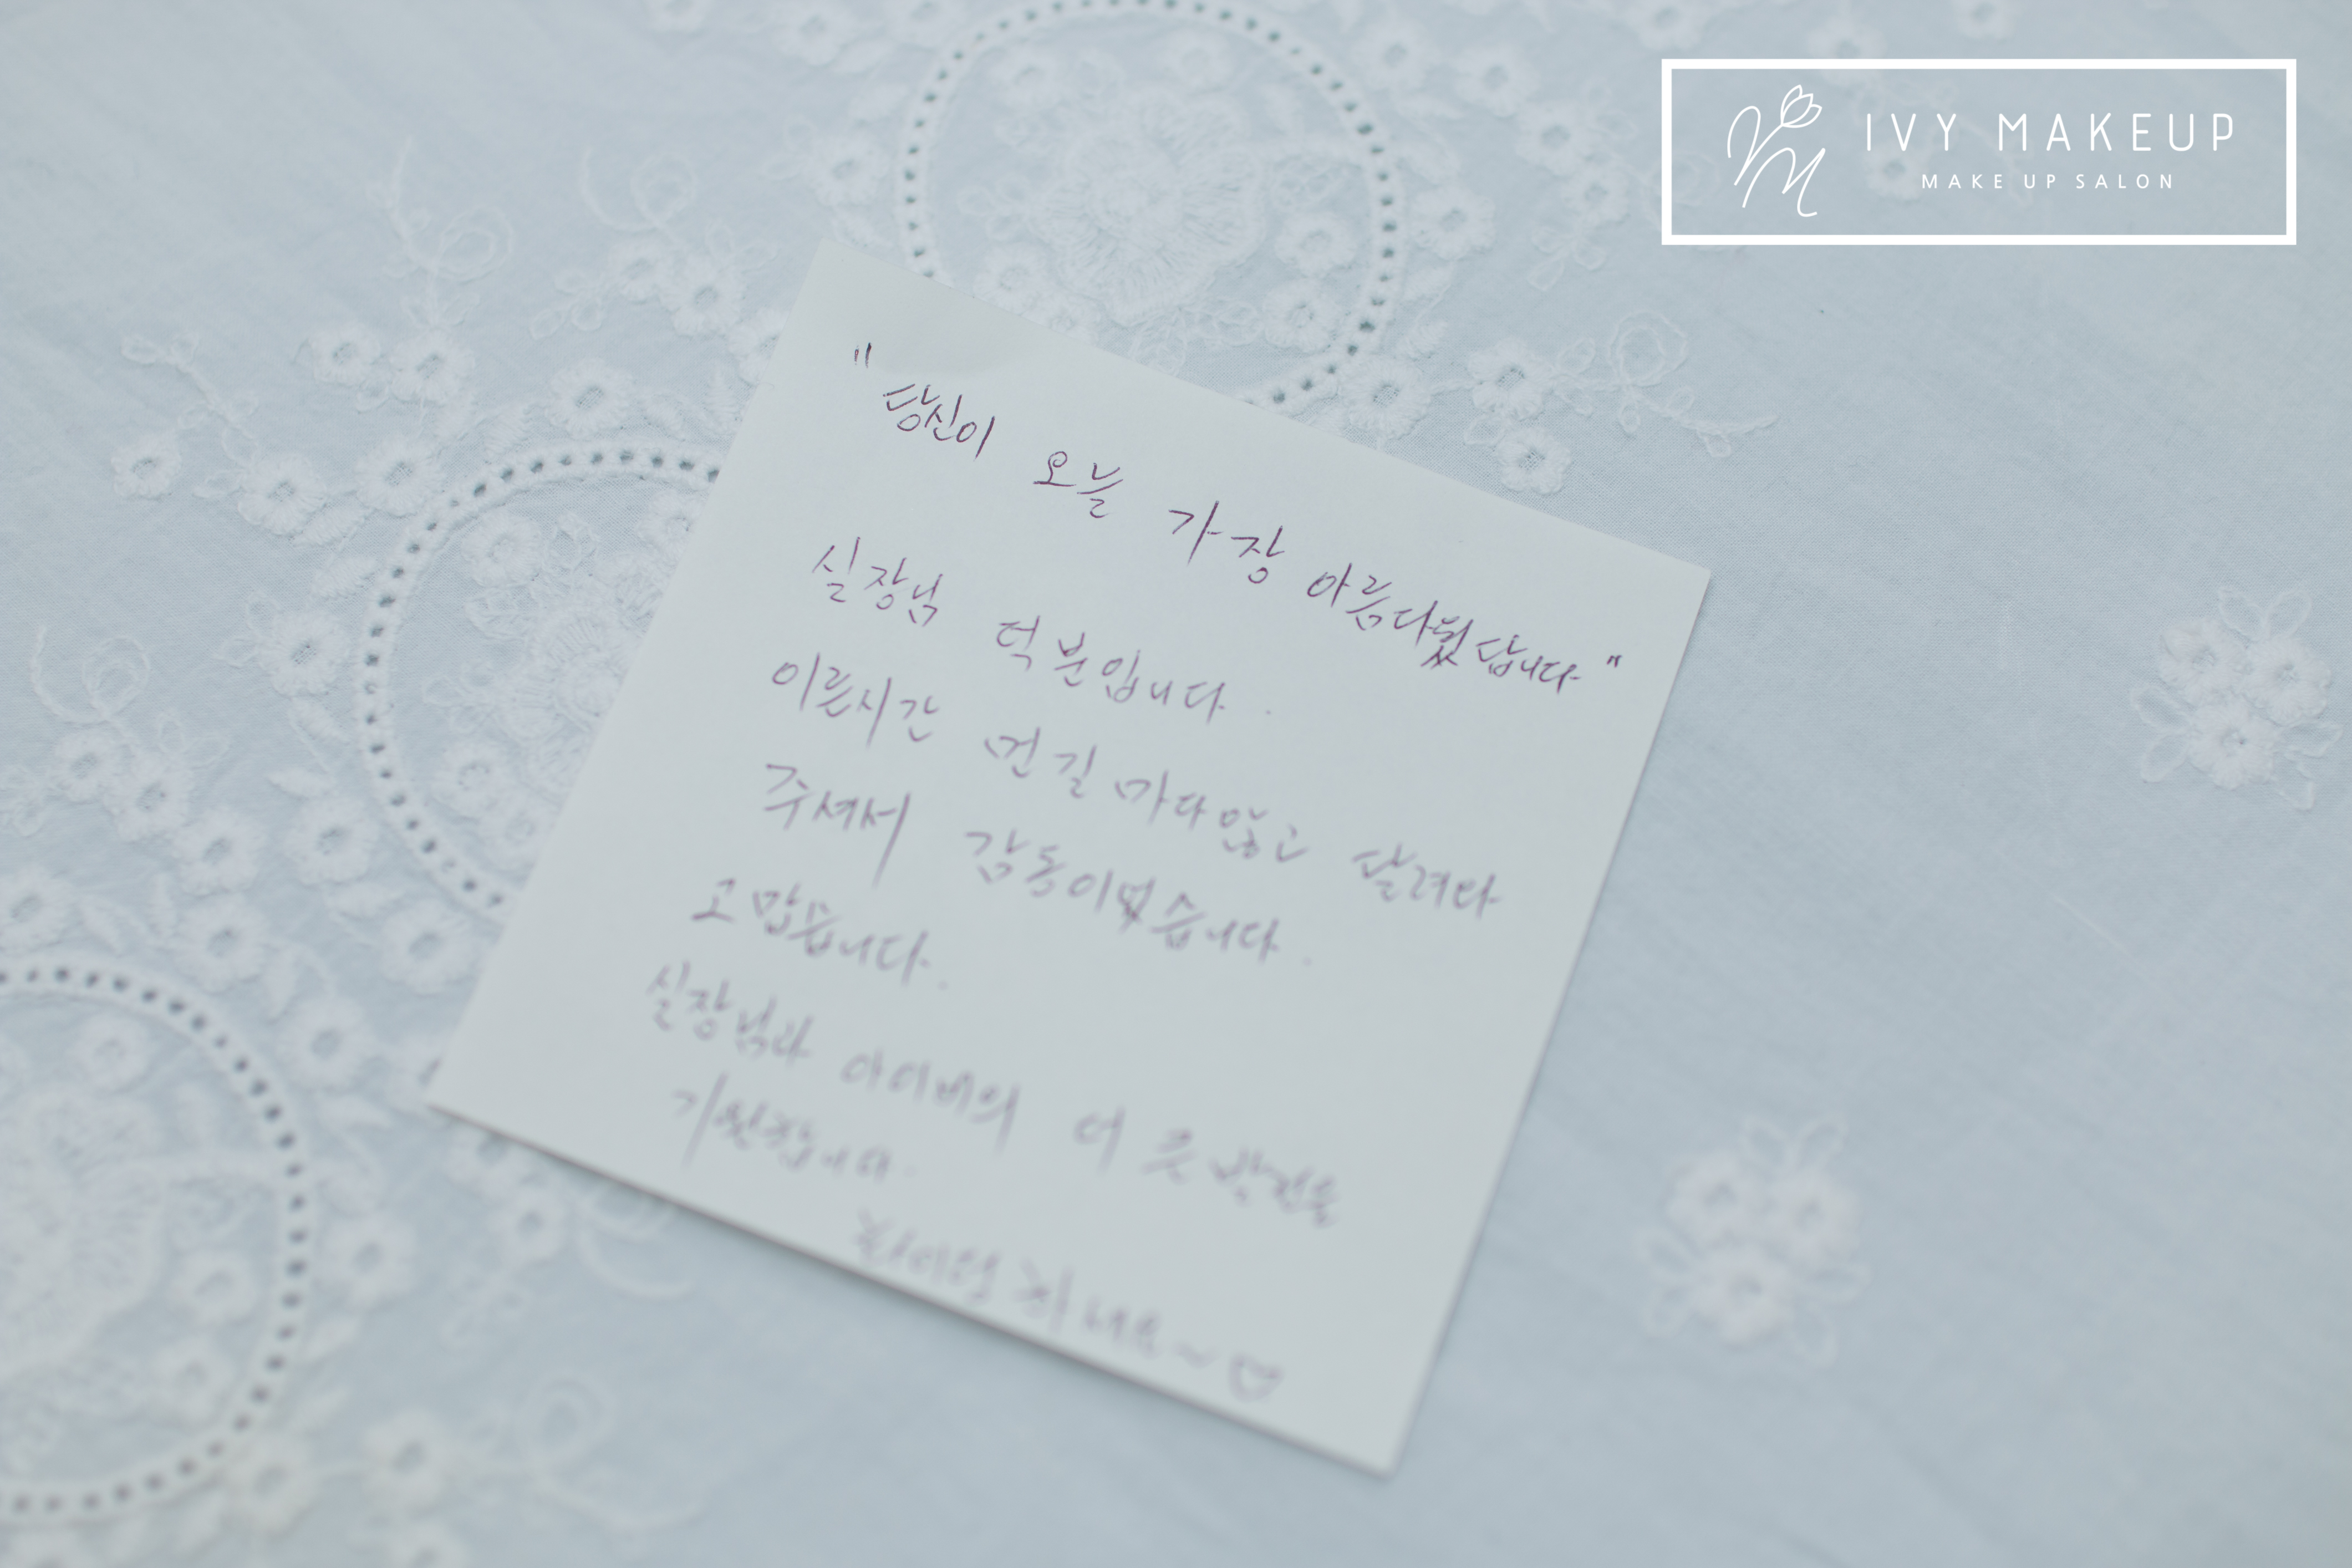 IVY MAKEUP
MAKE UP SALON
"당신이 오늘 가장 아름다웠답니다"
실장님 덕분입니다.
이른시간 먼길 마다않고 달려와
주셔서 감동이었습니다.
고맙습니다.
실장님과 아이비의 더 큰 발전을
기원합니다.
화이팅 하세요~♡